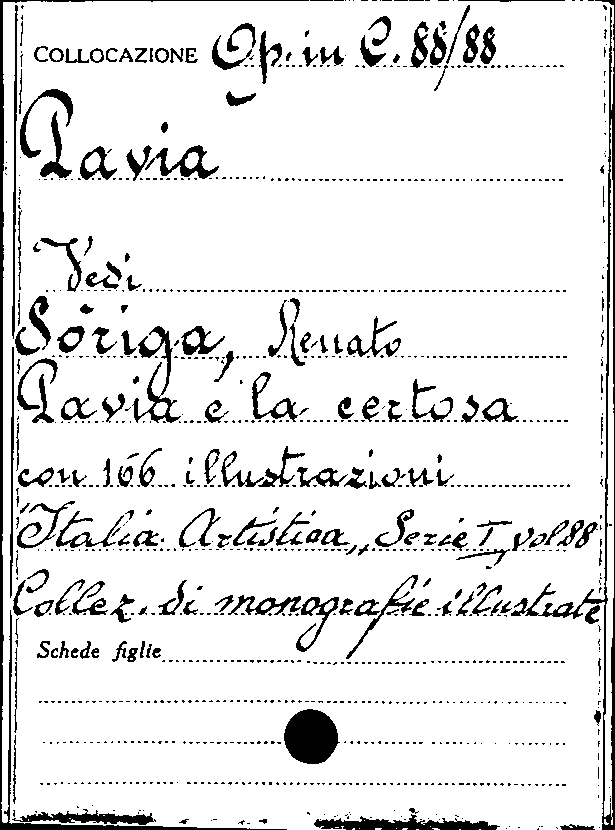 COLLOCAZIONE Op. in C. 88/88
Pavia
Vedi
Sòriga, Renato
Pavia e la certosa
con 166 illustrazioni
"Italia Artistica,, Serie I, vol 88
Collez. di monografie illustrate
Schede figlie